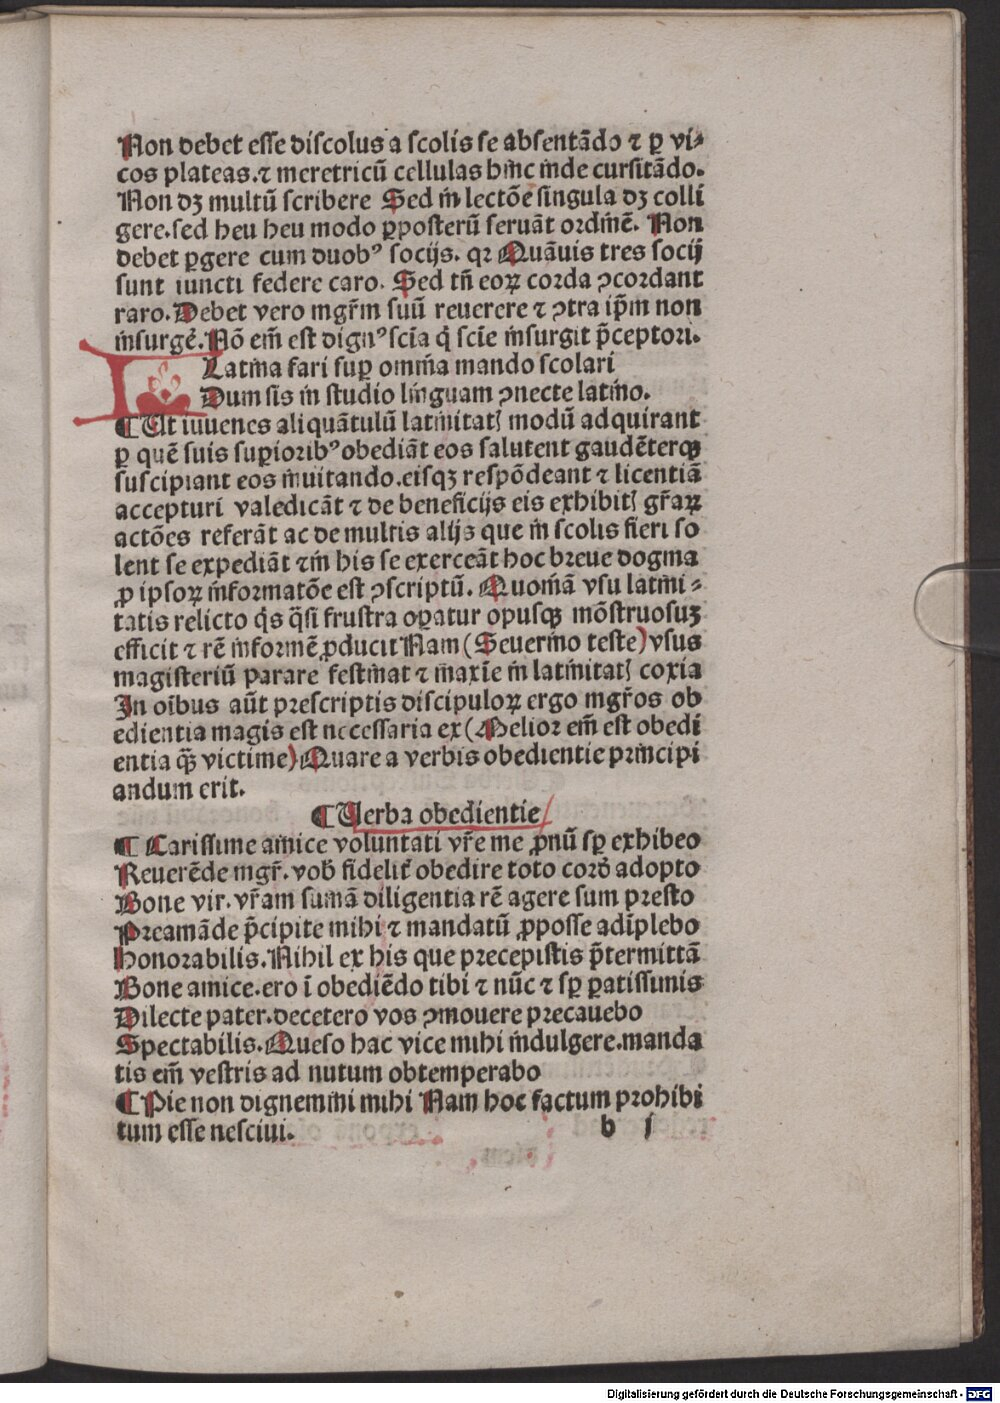 Non debet esse discolus a scolis se absentādo ⁊ ꝑ vi⸗
cos plateas.⁊ meretricū cellulas hinc inde cursitādo.
Non dꝫ multū scribere Sed in lectōe singula dꝫ colli
gere.sed heu heu modo p̲posterū seruāt ordinē. Non
debet ꝑgere cum duobꝰ socijs. qꝛ Quāuis tres socij
sunt iuncti federe caro. Sed tn̄ eoꝝ corda ꝯcordant
raro. Debet vero mgr̄m suū reuerere ⁊ ꝯtra ip̄m non
insurgē. Nō em̄ est dignꝰ scīa q̇ scīe insurgit p̄ceptori.
Latina fari suꝑ omnia mando scolari
Dum sis in studio linguam ꝯnecte latino.
¶ Ut iuuenes aliquātulū latinitatꝭ modū adquirant
ꝑ quē suis suꝑioribꝰ obediāt eos salutent gaudēterqꝫ
suscipiant eos inuitando.eisqꝫ respōdeant ⁊ licentiā
accepturi valedicāt ⁊ de beneficijs eis exhibitꝭ gr̄aꝝ
actōes referāt ac de multis alijs que in scolis fieri so
lent se expediāt ⁊in his se exerceāt hoc breue dogma
ꝓ ipsoꝝ informatōe est ꝯscriptū. Quoniā vsu latini⸗
tatis relicto q̇s q̄si frustra oꝑatur opusqꝫ mōstruosuꝫ
efficit ⁊ rē informē ꝓducit Nam (Seuerino teste) vsus
magisteriū parare festinat ⁊ maxīe in latinitatꝭ coxia
In oībus aūt prescriptis discipuloꝝ ergo mgr̄os ob
edientia magis est necessaria ex (Melior em̄ est obedi
entia q̄ꝫ victime) Quare a verbis obedientie principi
andum erit.
¶ Uerba obedientie
¶ Carissime amice voluntati vr̄e me ꝓnū sꝑ exhibeo
Reuerēde mgr̄. vob̄ fideliť obedire toto corď adopto
Bone vir. vr̄am sumā diligentia rē agere sum presto
Preamāde p̄cipite mihi ⁊ mandatū ꝓposse adīplebo
Honorabilis. Nihil ex his que precepistis p̄termittā
Bone amice.ero ī obediēdo tibi ⁊ nūc ⁊ sꝑ ꝑatissimis
Dilecte pater.decetero vos ꝯmouere precauebo
Spectabilis. Queso hac vice mihi indulgere.manda
tis em̄ vestris ad nutum obtemperabo
¶ Pie non dignemini mihi Nam hoc factum prohibi
tum esse nesciui. b j
Digitalisierung gefördert durch die Deutsche Forschungsgemeinschaft - DFG